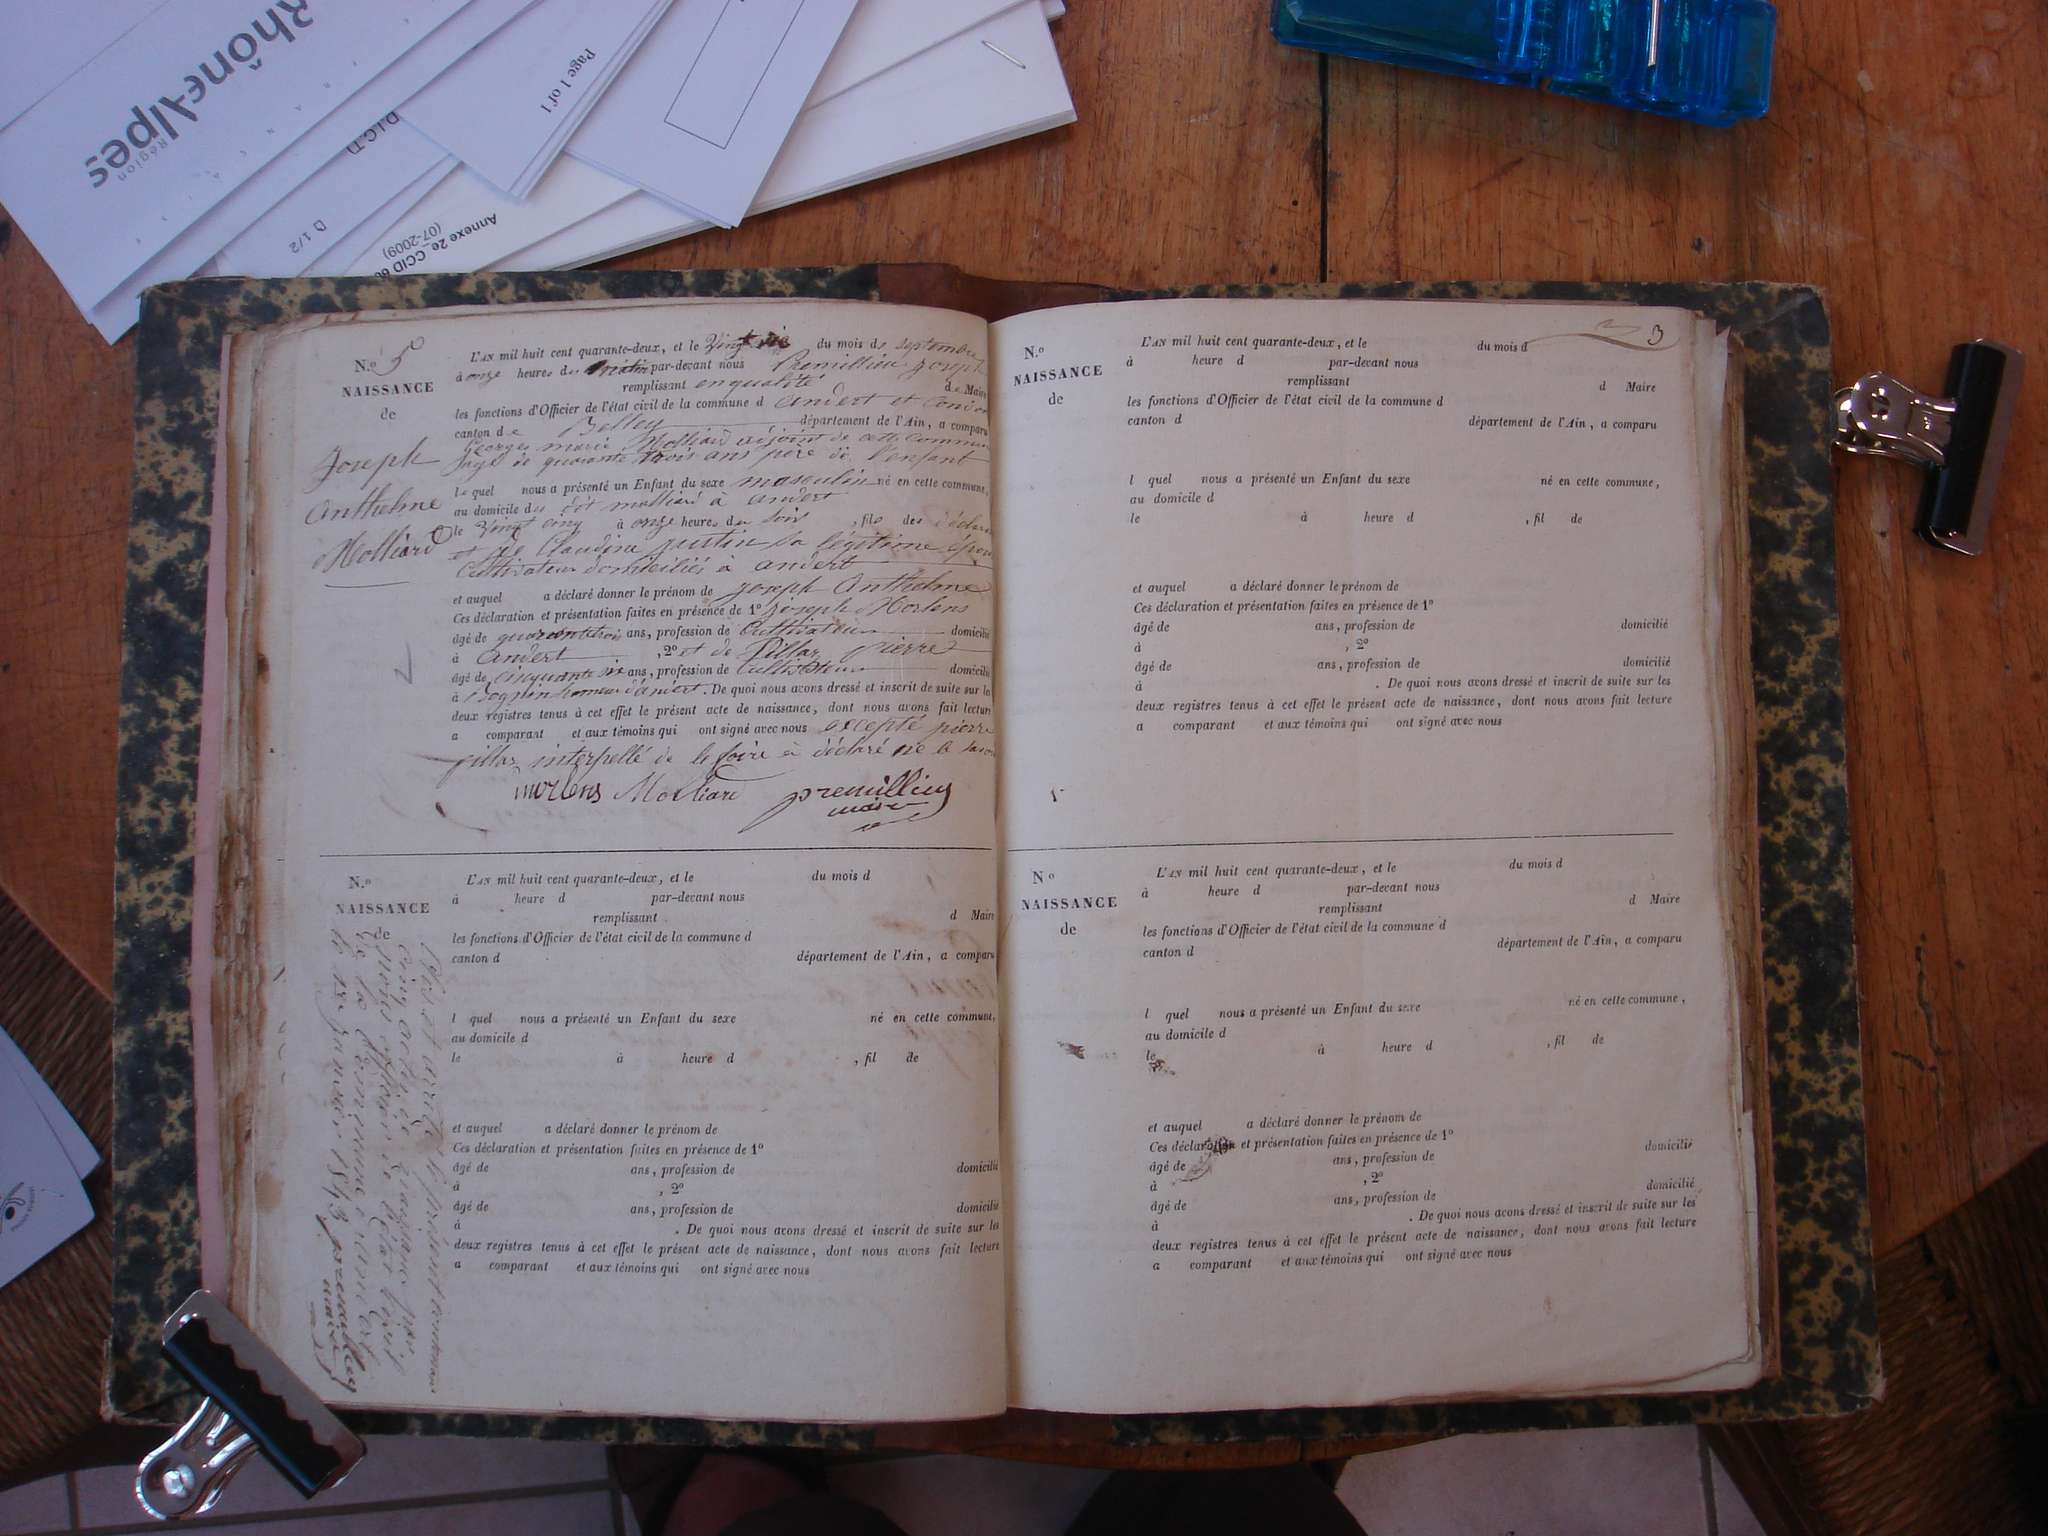 RhôneAlpes
Région
Page 1 of 1
D.I.C.T)
D 1/2
Annexe 2e_CCID
(07-2009)
N.o 5
NAISSANCE
de
Joseph
Anthelme
Molliard
L'AN mil huit cent quarante-deux, et le Vingt six du mois de septembre
à onze heures du matin par-devant nous Premillieu Joseph
remplissant en qualité de Maire
les fonctions d'Officier de l'état civil de la commune d andert et Condon
canton de Belley département de l'Ain, a comparu
Georges marie Molliard adjoint de cette commune
âgé de quarante trois ans père de l'enfant
le quel nous a présenté un Enfant du sexe masculin né en cette commune,
au domicile du dit molliard à andert
le Vingt cinq à onze heures du soir , fils des
et de Claudine justin sa légitime
Cultivateurs domiciliés à andert
et auquel a déclaré donner le prénom de joseph Anthelme
Ces déclaration et présentation faites en présence de 1o joseph Morlens
âgé de quarante trois ans, profession de Cultivateur domicilié
à Andert , 2o et de Pillaz pierre
âgé de cinquante six ans, profession de Cultivateur domicilié
à Bognin hameau d'andert. De quoi nous avons dressé et inscrit de suite sur les
deux registres tenus à cet effet le présent acte de naissance, dont nous avons fait lecture
a comparant et aux témoins qui ont signé avec nous excepté pierre
pillaz interpellé de le faire a déclaré ne le savoir
morlens Molliard premillieu
maire
N.o
NAISSANCE
de
L'AN mil huit cent quarante-deux, et le du mois d
à heure d par-devant nous
remplissant d Maire
les fonctions d'Officier de l'état civil de la commune d
canton d département de l'Ain, a comparu
l quel nous a présenté un Enfant du sexe né en cette commune,
au domicile d
le à heure d , fil de
et auquel a déclaré donner le prénom de
Ces déclaration et présentation faites en présence de 1o
âgé de ans, profession de domicilié
à , 2o
âgé de ans, profession de domicilié
à . De quoi nous avons dressé et inscrit de suite sur les
deux registres tenus à cet effet le présent acte de naissance, dont nous avons fait lecture
a comparant et aux témoins qui ont signé avec nous
Clos et arrêté le présent contenant
cinq actes de naissance par
nous officier de l'état Civil
de la Commune d'andert
le 1er janvier 1843 premillieu
maire
3
N.o
NAISSANCE
de
L'AN mil huit cent quarante-deux, et le du mois d
à heure d par-devant nous
remplissant d Maire
les fonctions d'Officier de l'état civil de la commune d
canton d département de l'Ain, a comparu
l quel nous a présenté un Enfant du sexe né en cette commune,
au domicile d
le à heure d , fil de
et auquel a déclaré donner le prénom de
Ces déclaration et présentation faites en présence de 1o
âgé de ans, profession de domicilié
à , 2o
âgé de ans, profession de domicilié
à . De quoi nous avons dressé et inscrit de suite sur les
deux registres tenus à cet effet le présent acte de naissance, dont nous avons fait lecture
a comparant et aux témoins qui ont signé avec nous
N o
NAISSANCE
de
L'AN mil huit cent quarante-deux, et le du mois d
à heure d par-devant nous
remplissant d Maire
les fonctions d'Officier de l'état civil de la commune d
canton d département de l'Ain, a comparu
l quel nous a présenté un Enfant du sexe né en cette commune,
au domicile d
le à heure d , fil de
et auquel a déclaré donner le prénom de
Ces déclaration et présentation faites en présence de 1o
âgé de ans, profession de domicilié
à , 2o
âgé de ans, profession de domicilié
à . De quoi nous avons dressé et inscrit de suite sur les
deux registres tenus à cet effet le présent acte de naissance, dont nous avons fait lecture
a comparant et aux témoins qui ont signé avec nous